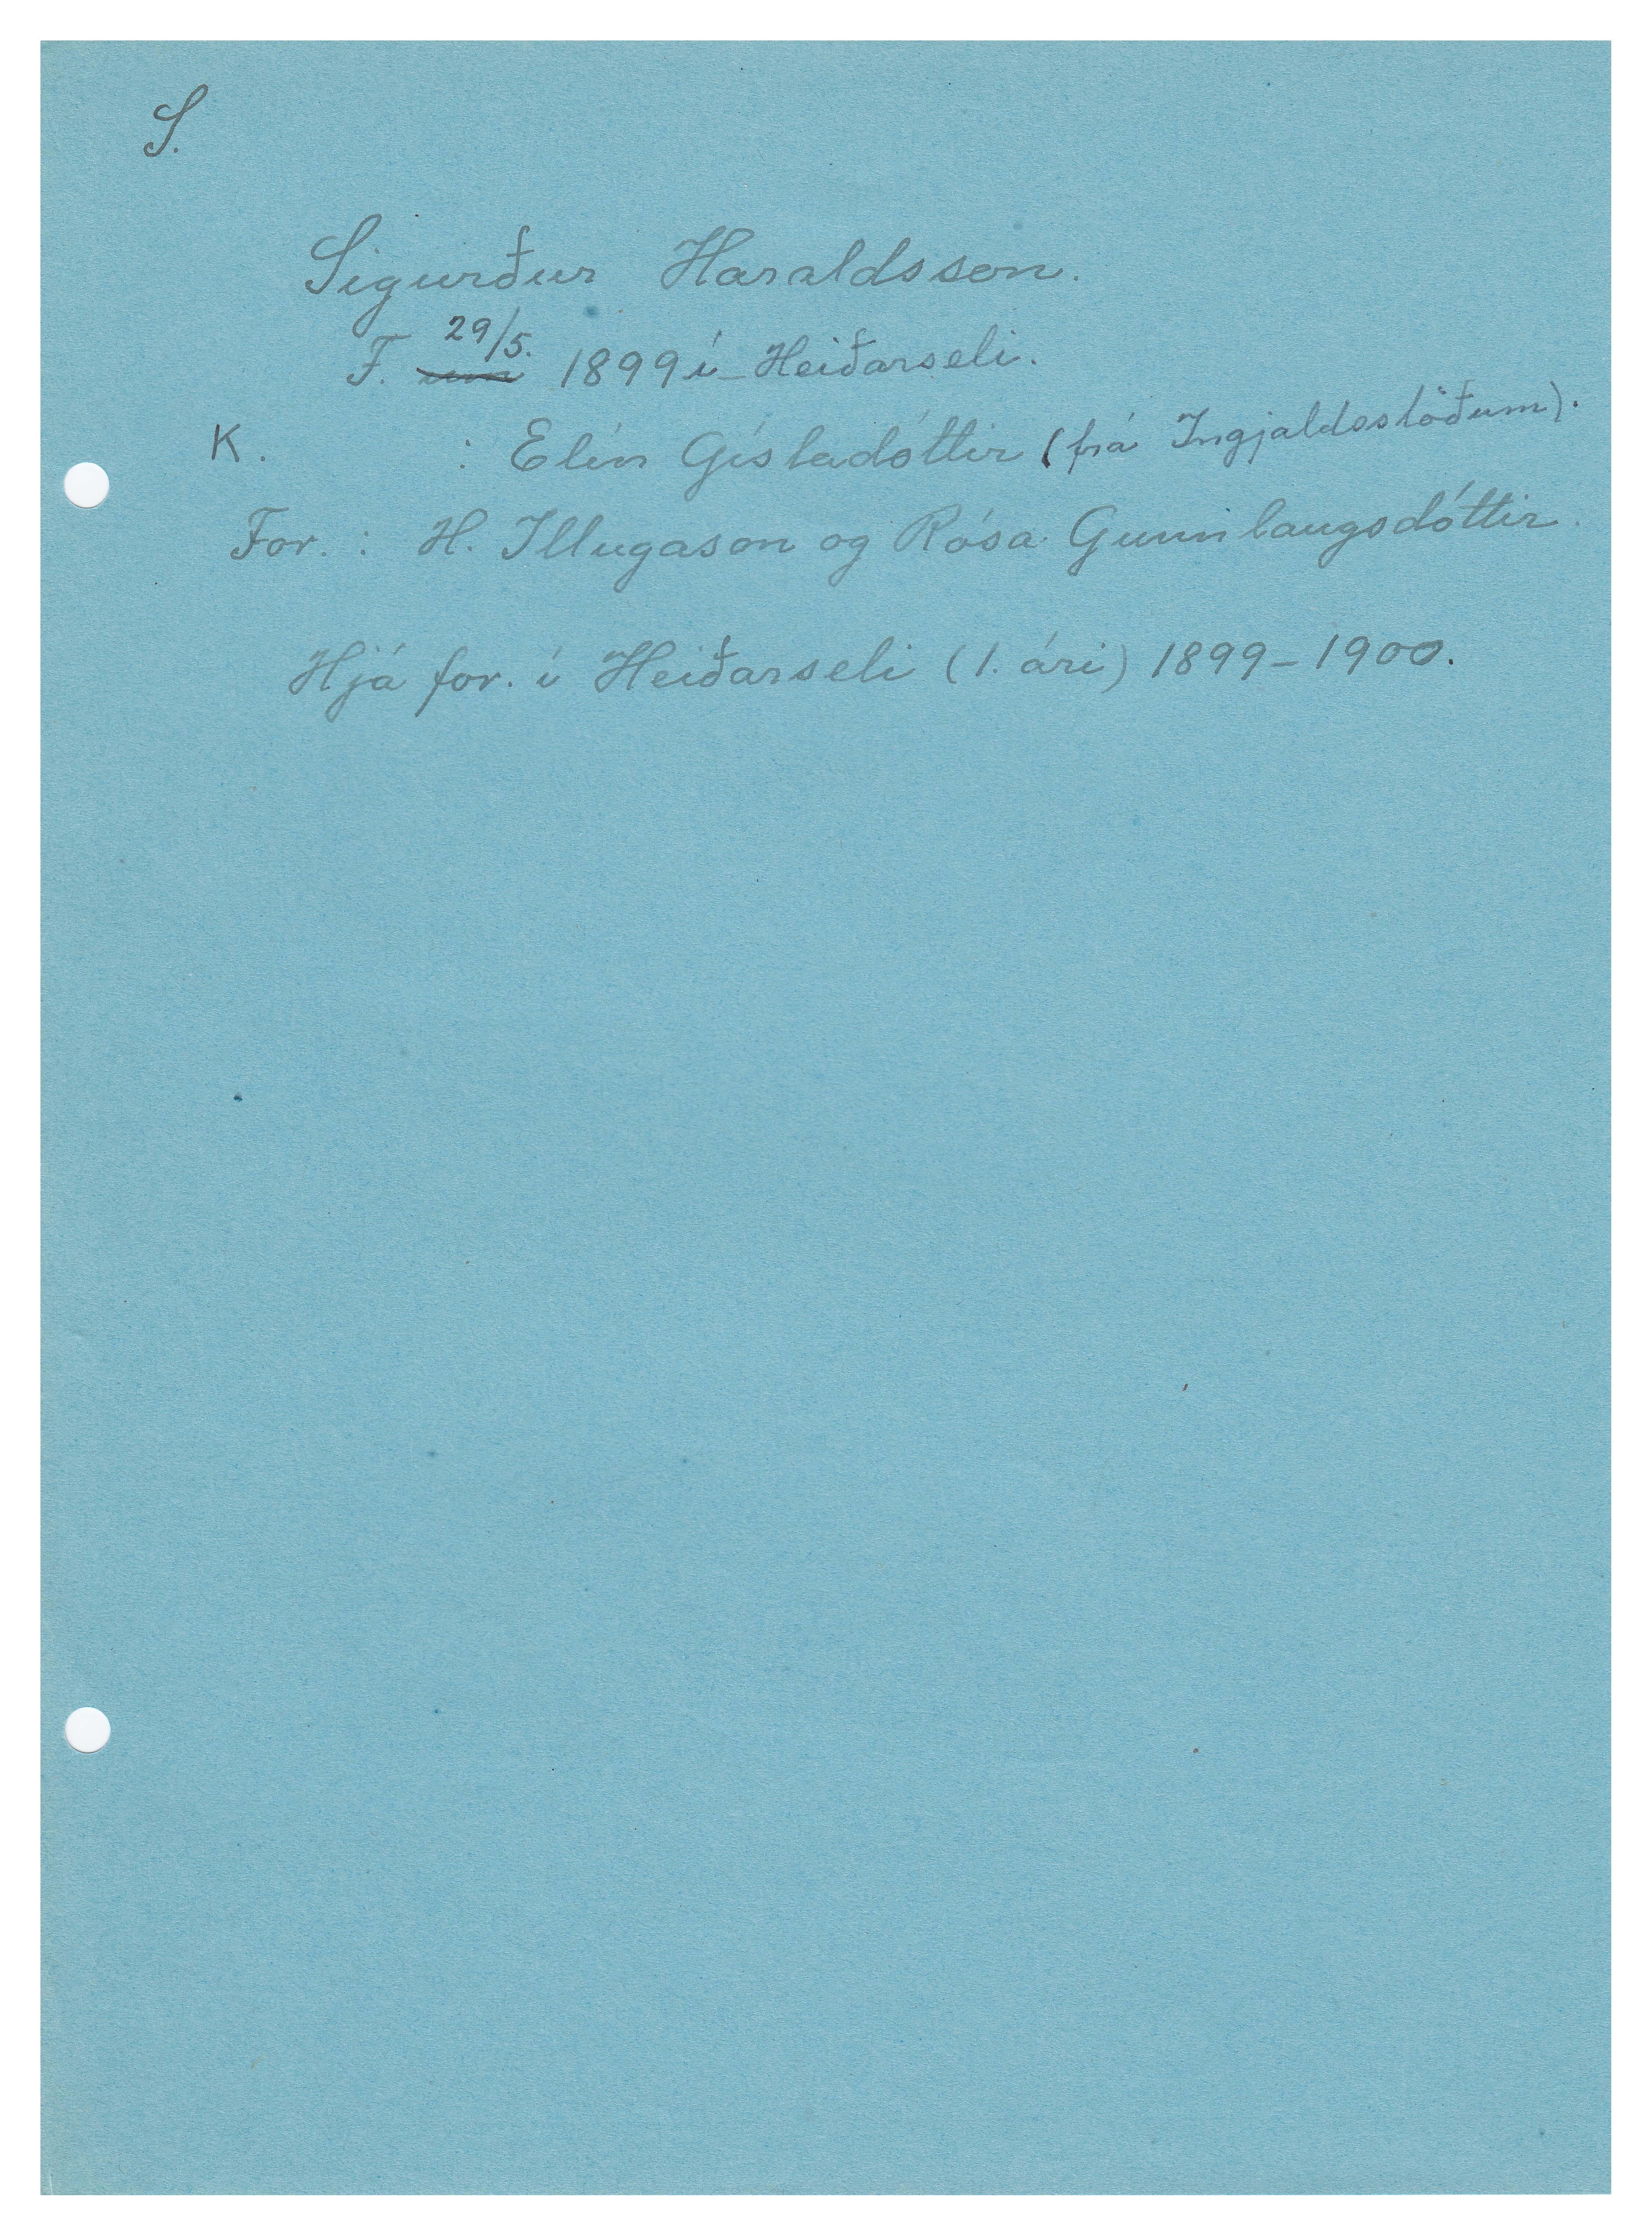 S.
Sigurður Haraldsson.
F. 29/5. 1899 í Heiðarseli.
K. : Elín Gísladóttir (frá Ingjaldsstöðum).
For. : H. Illugason og Rósa Gunnlaugsdóttir.
Hjá for. í Heiðarseli (1. ári) 1899-1900.